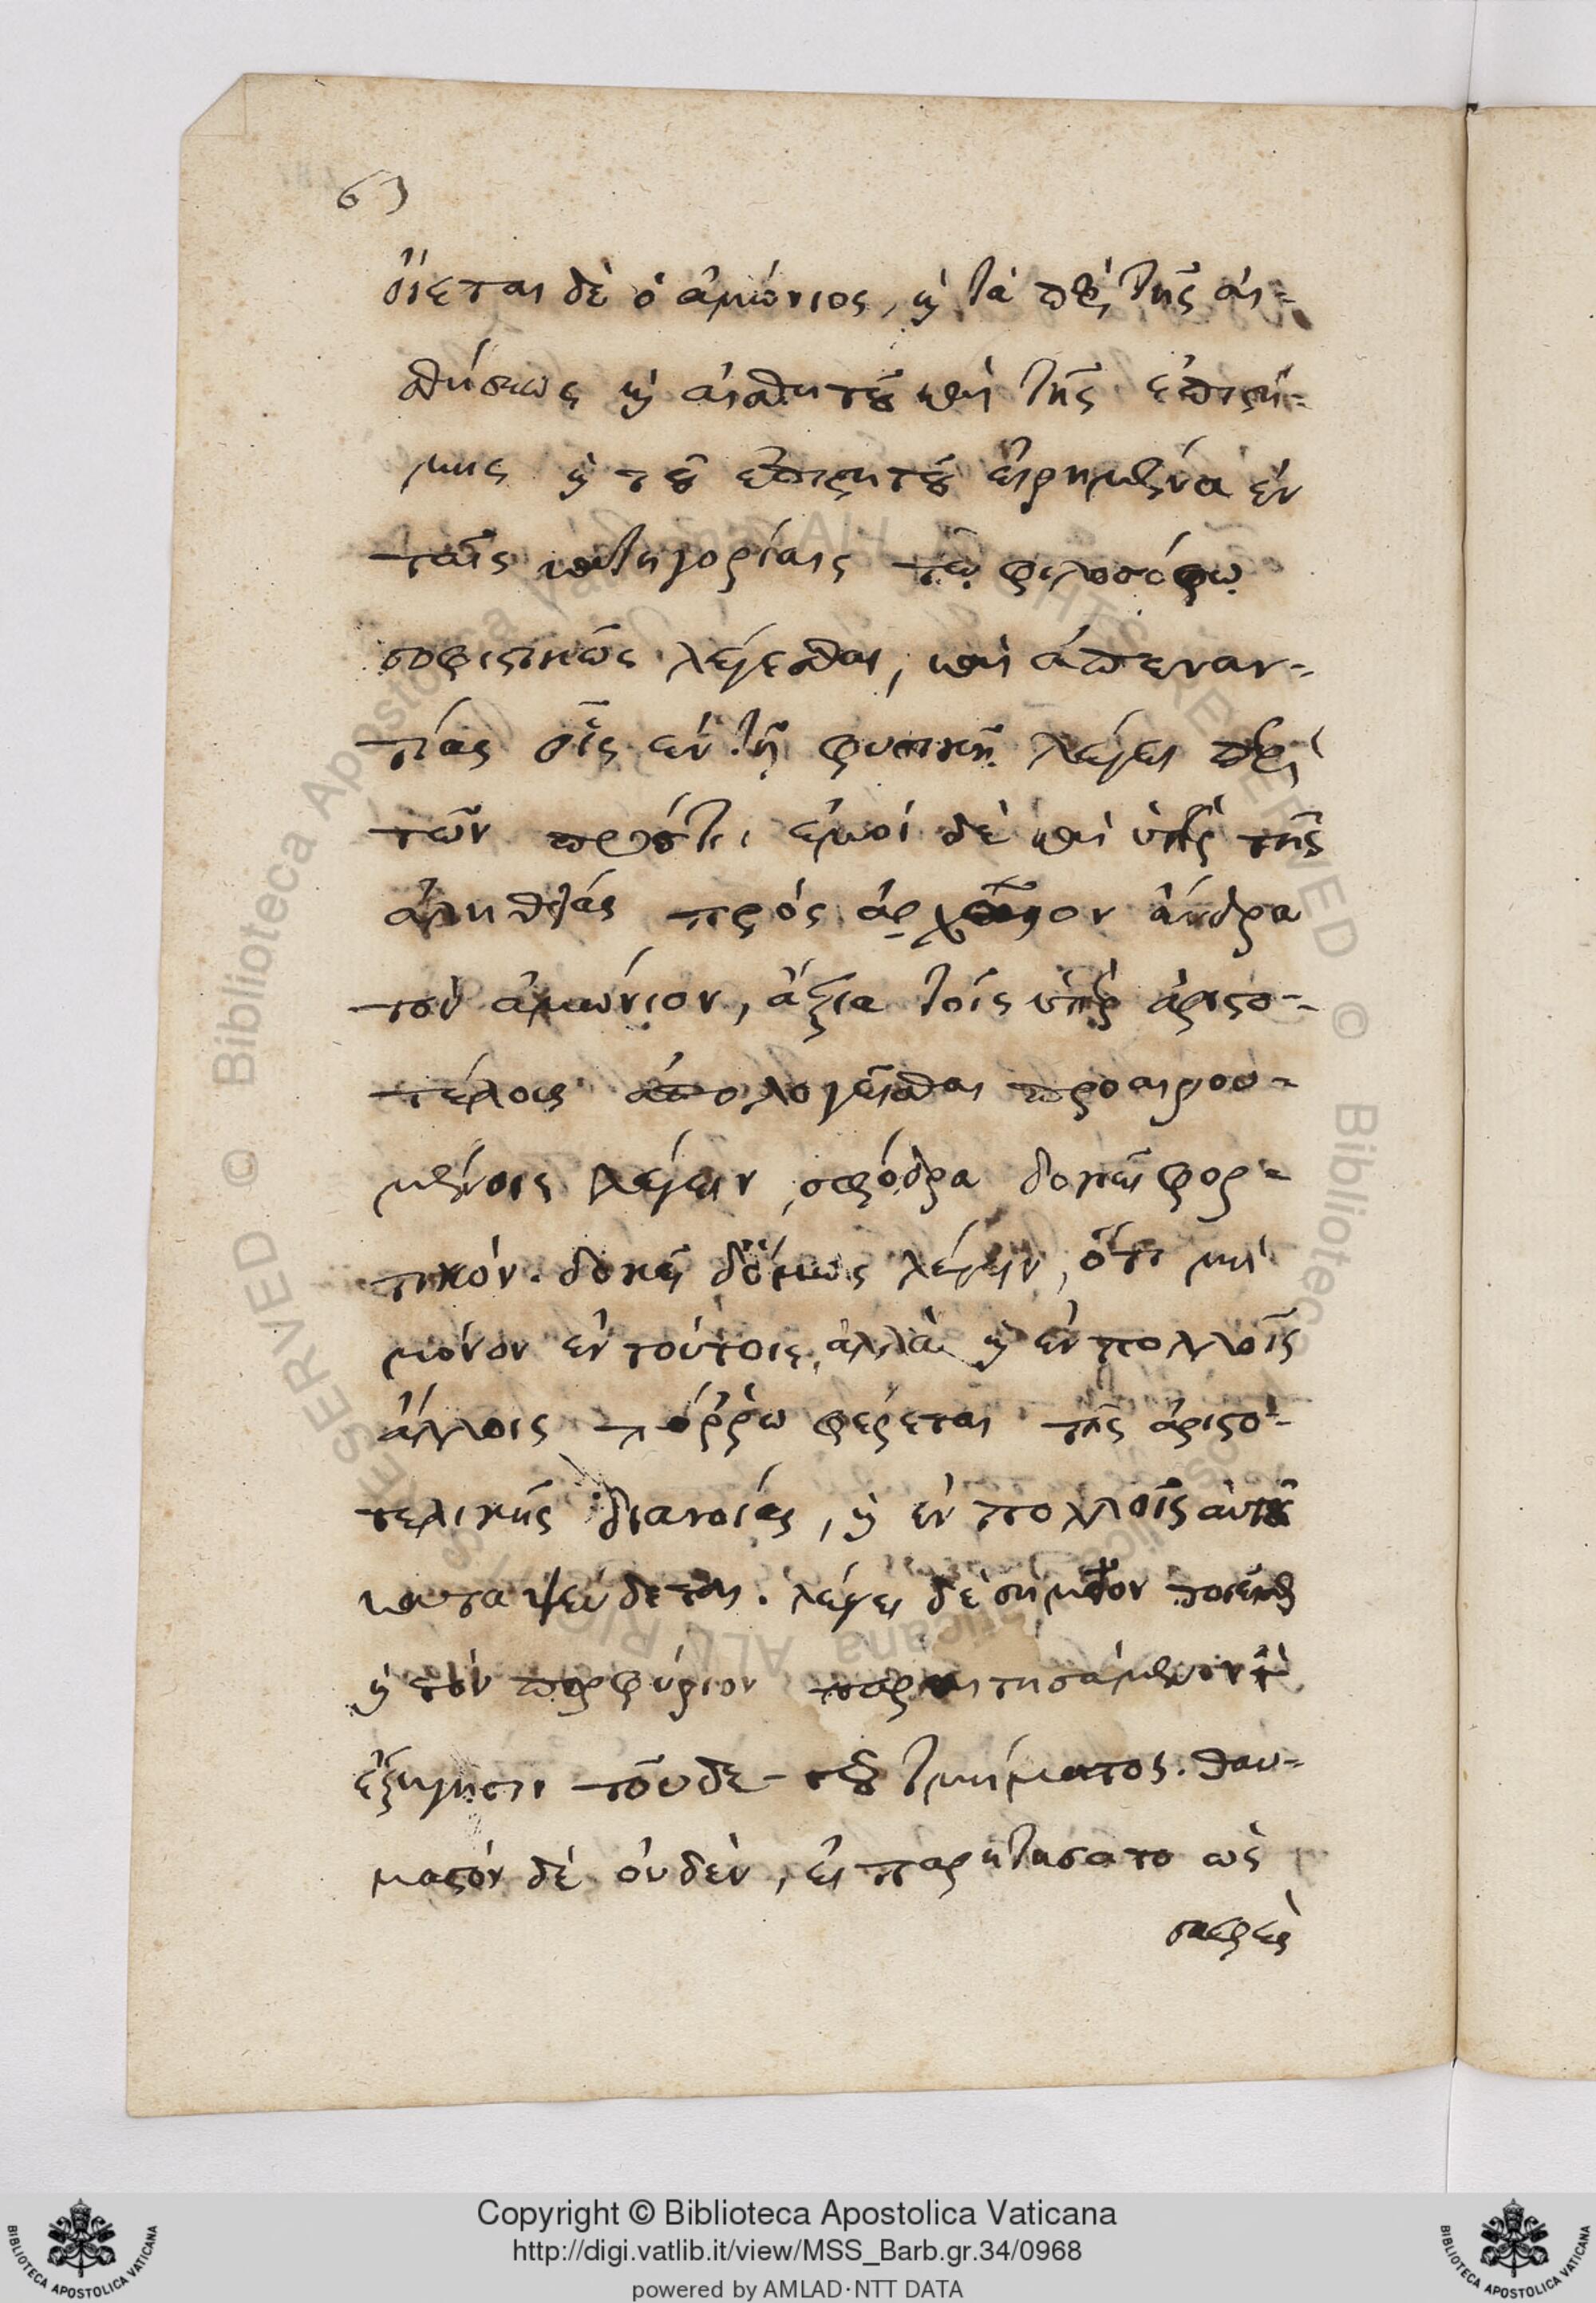 63
ὄιεται δὲ ὁ ἀμώνιος, καὶ τὰ περὶ τῆς αἰ-
σθήσεως καὶ αἰσθητοῦ καὶ τῆς ἐπιστή-
μης καὶ τοῦ ἐπιστητοῦ εἰρημένα ἐν
ταῖς κατηγορίαις τῷ φιλοσόφῳ
σοφιστικῶς λέγεσθαι, καὶ ἀπεναν-
τίας οἷς ἐν τῇ φυσικῇ λέγει περὶ
τῶν πρός τι. ἐμοὶ δὲ καὶ ὑπὲρ τῆς
ἀληθείας πρὸς ἀρχαῖον ἄνδρα
τὸν ἀμώνιον, ἄξια τοῖς ὑπὲρ ἀριστο-
τέλους ἀπολογεῖσθαι προαιρου-
μένοις λέγειν, σφόδρα δοκεῖ φορ-
τικόν. δοκεῖ δ' ὅμως λέγειν, ὅτι μὴ
μόνον ἐν τούτοις, ἀλλὰ καὶ ἐν πολλοῖς
ἄλλοις πόῤῥω φέρεται τῆς ἀριστο-
τελικῆς διανοίας, καὶ ἐν πολλοῖς αὐτοῦ
καταψεύδεται. λέγει δὲ σημεῖον
καὶ τὸν πορφύριον παραιτησάμενον τὴν
ἐξήγησιν τοῦδε τοῦ τμήματος. θαυ-
μαστὸν δὲ οὐδὲν, εἰ παρῃτήσατο ὡς
σαφὲς
Copyright © Biblioteca Apostolica Vaticana
http://digi.vatlib.it/view/MSS_Barb.gr.34/0968
powered by AMLAD·NTT DATA